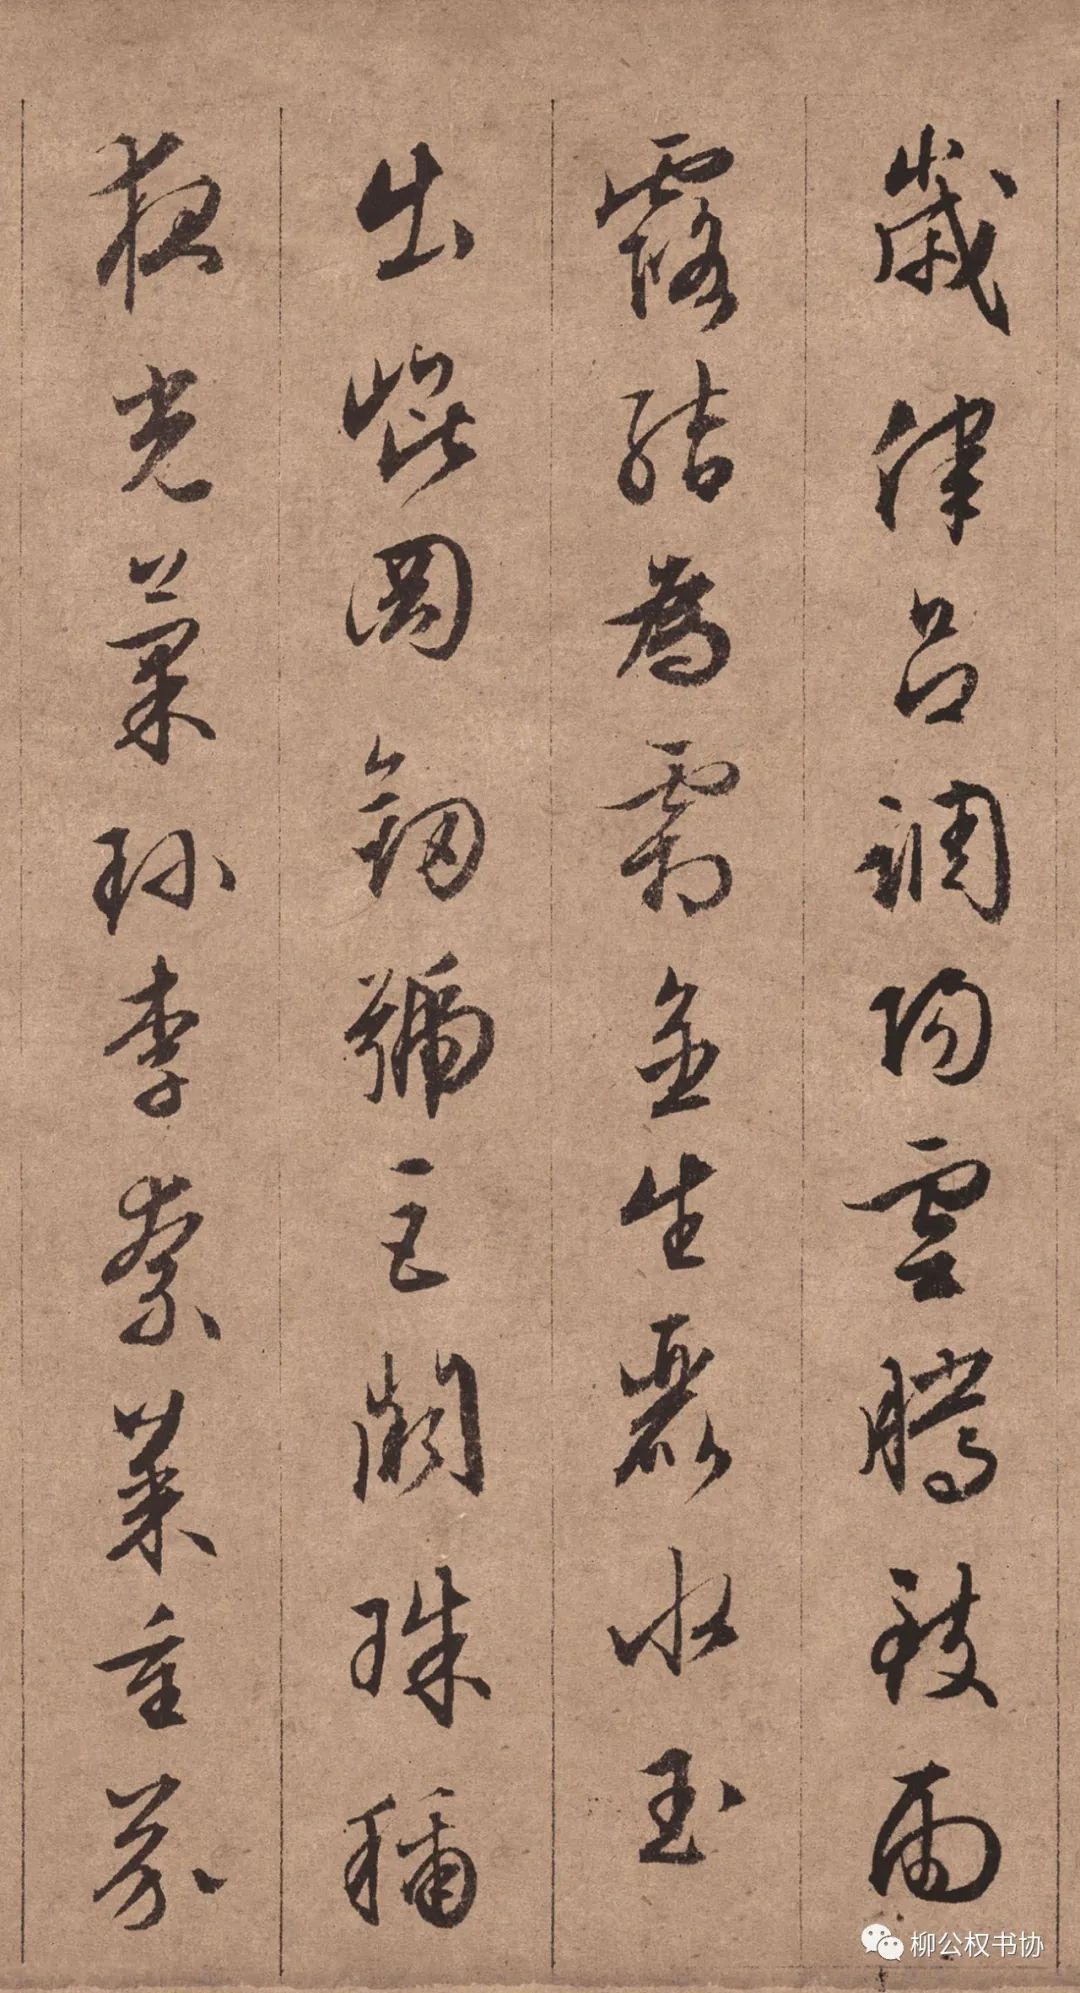 歲律呂調陽雲騰致雨
露結為霜金生麗水玉
出崐岡劒號巨闕珠稱
夜光菓珎李柰菜重芥
柳公权书协